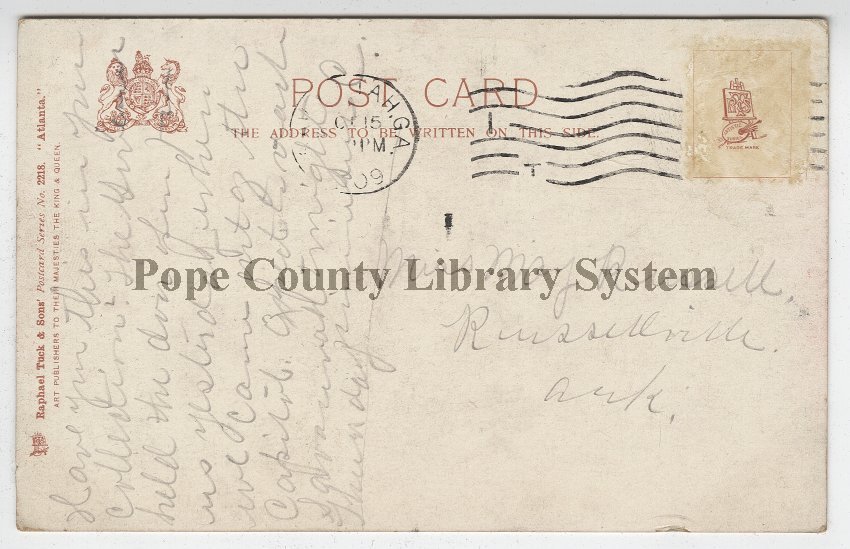 POST CARD
THE ADDRESS TO BE WRITTEN ON THIS SIDE.
TRADE MARK
TA, GA
OC 15
PM
09
Raphael Tuck & Sons' Postcard Series No. 2218. "Atlanta."
ART PUBLISHERS TO THEIR MAJESTIES THE KING & QUEEN.
Have you this in your
collection? The Governor
held the door for
us yesterday when
we came out of the
Capitol.
Savannah
Thursday
Miss May Russell,
Russellville.
Ark.
Pope County Library System